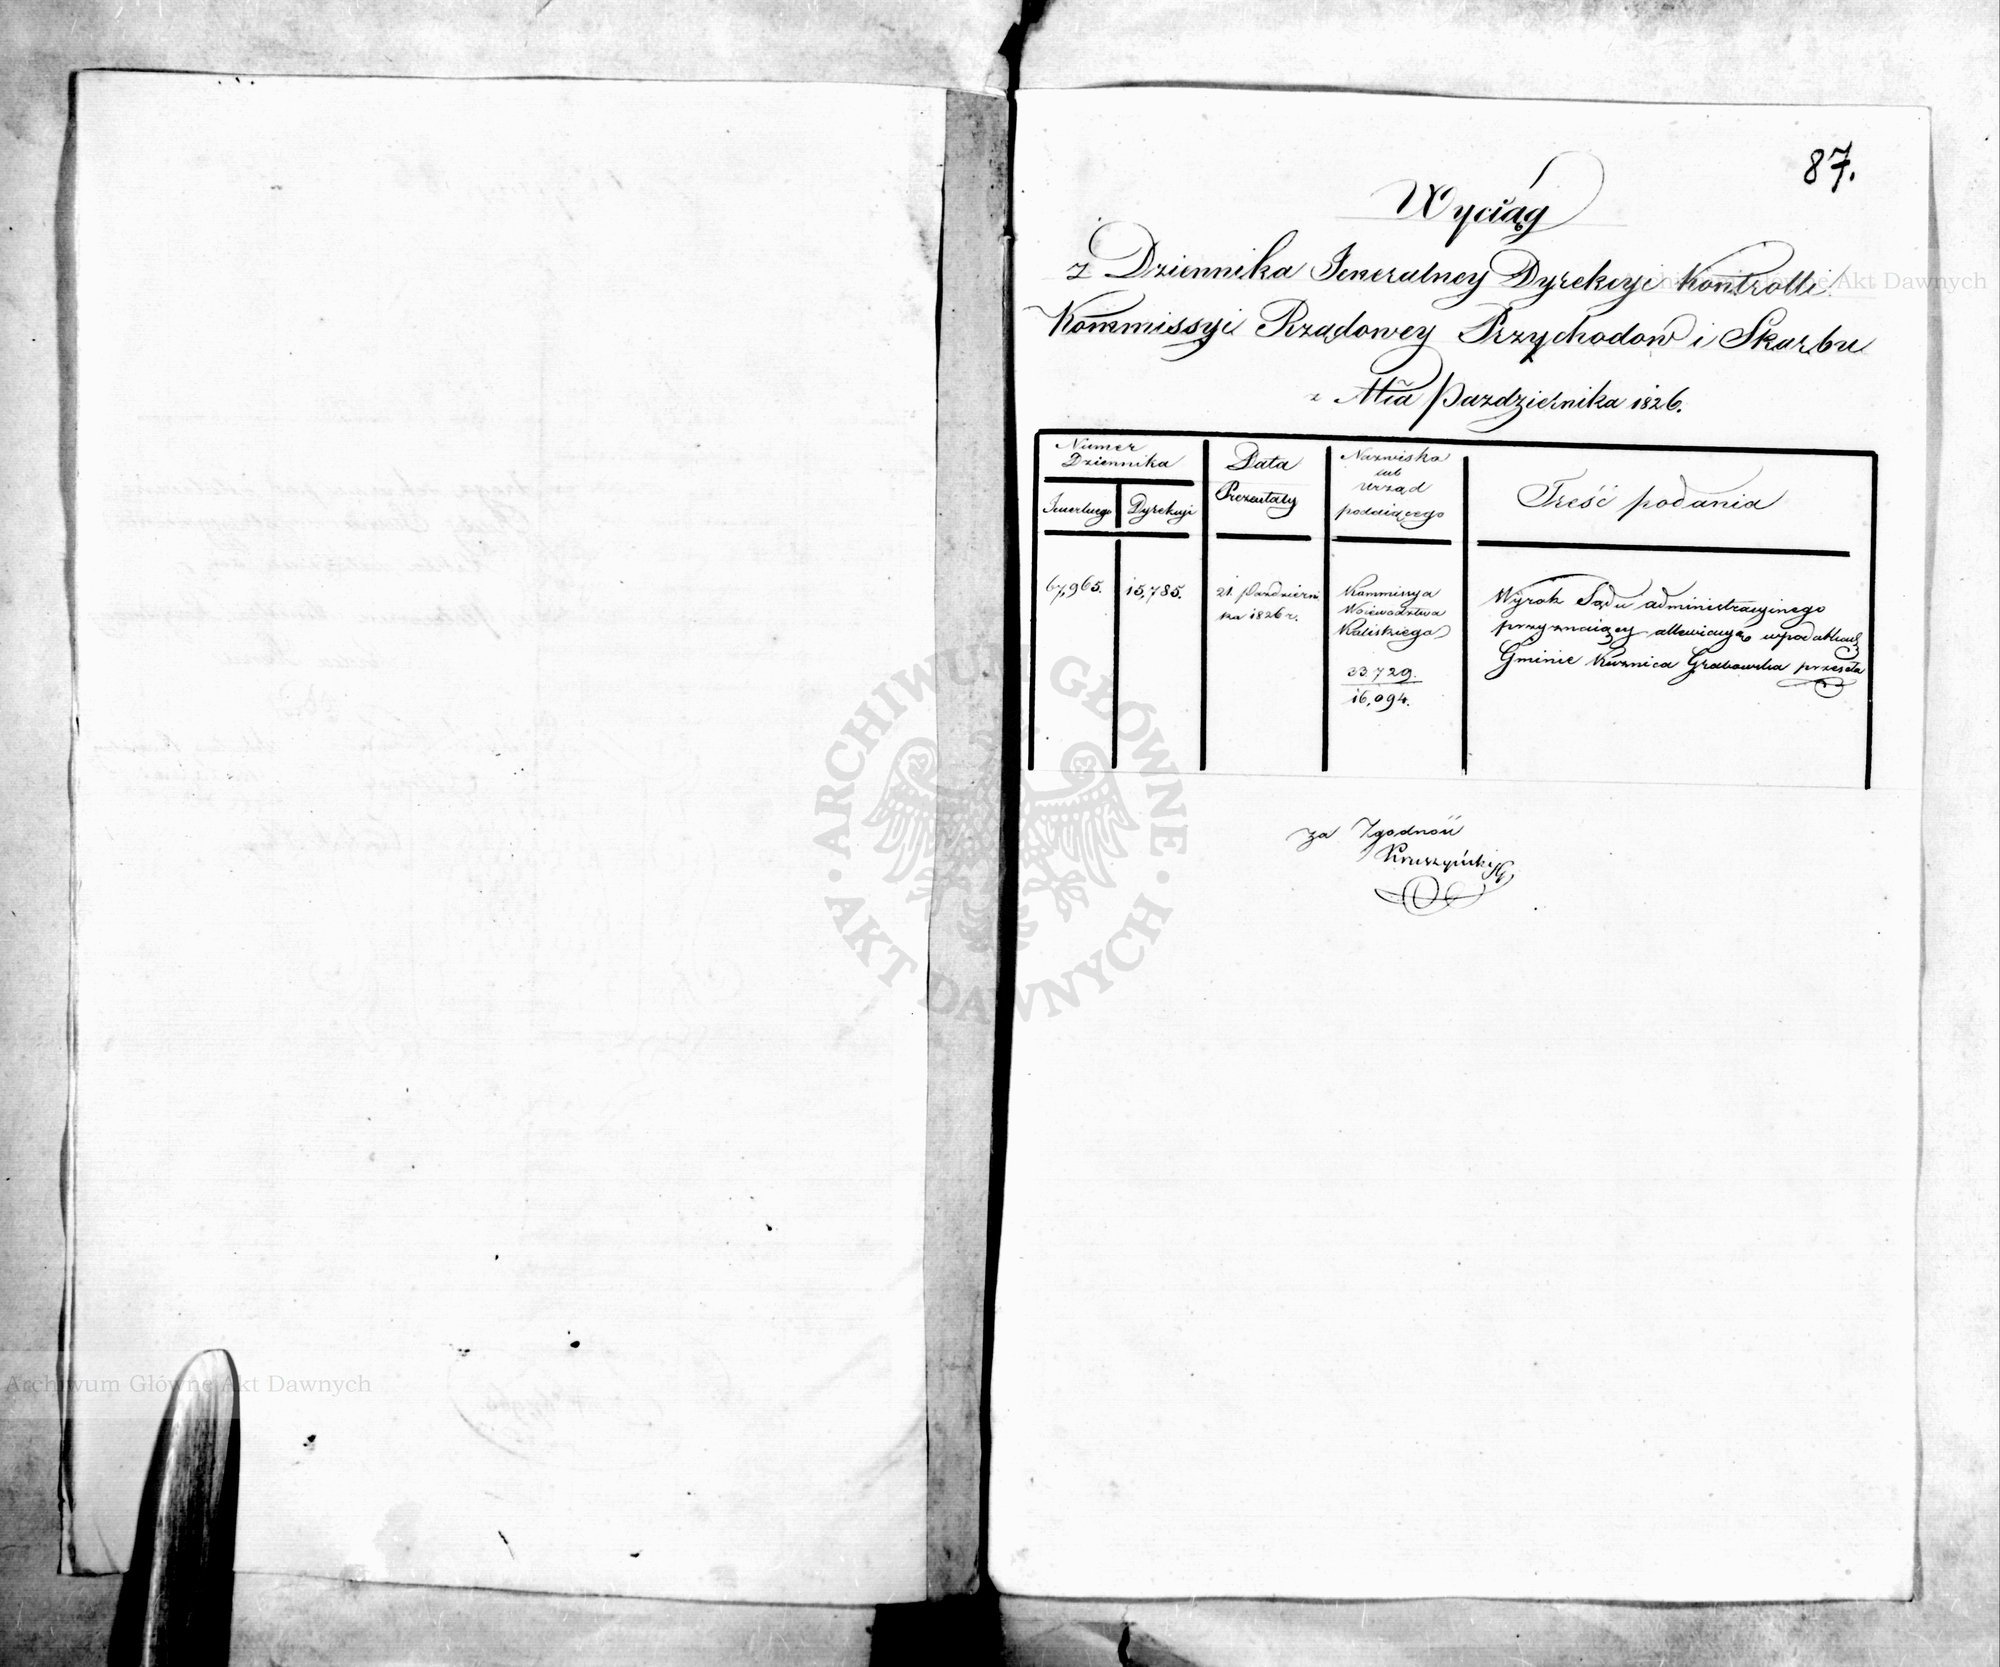 87.
Wyciąg
z Dziennika Jeneralney Dyrekcyi Kontrolli
Kommissyi Rządowey Przychodow i Skarbu
z Mca Pazdziernika 1826.
Numer
Dziennika
Jeneralnego
Dyrekcyi
Data
Prezentaty
Nazwisko
lub
Urząd
podaiącego
Treść podania
67,965.
15,785.
21. Pazdzierni
ka 1826 r.
Kommissya
Woiewodztwa
Kaliskiego
33.729.
16,094.
Wyrok Sądu administracyinego
przyznaiący allewiacyą w podatkach
Gminie Kuznica Grabowska przesyła
Za Zgodność
Archiwum Główne Akt Dawnych
ARCHIWUM GŁÓWNE · AKT DAWNYCH ·
Archiwum Główne Akt Dawnych